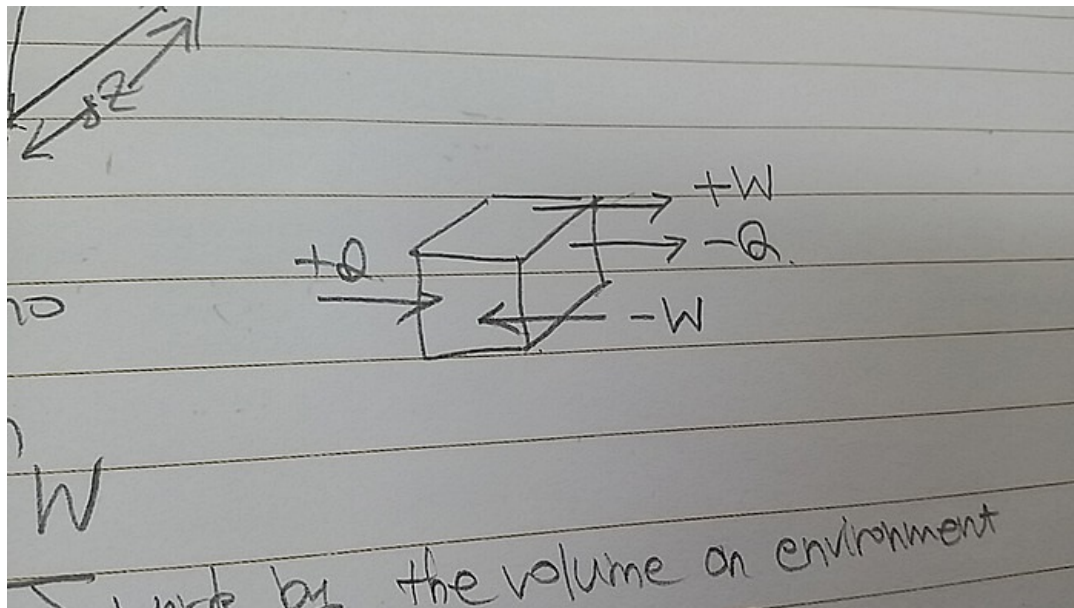 δz
+W
+Q
-Q
-W
W
work by the volume on environment